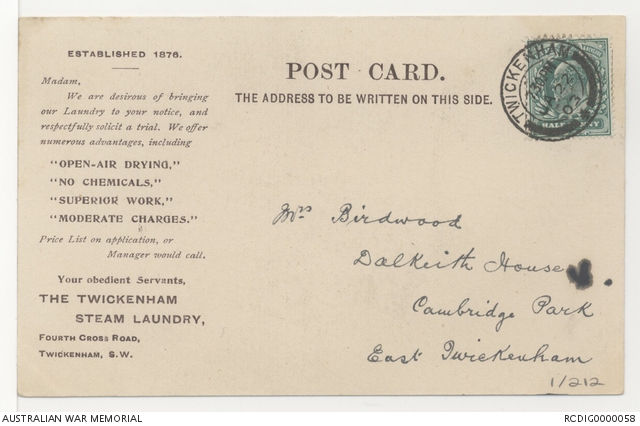 ESTABLISHED 1876.
Madam,
We are desirous of bringing
our Laundry to your notice, and
respectfully solicit a trial. We offer
numerous advantages, including
"OPEN-AIR DRYING,"
"NO CHEMICALS,"
"SUPERIOR WORK,"
"MODERATE CHARGES."
Price List on application, or
Manager would call.
Your obedient Servants,
THE TWICKENHAM
STEAM LAUNDRY,
FOURTH CROSS ROAD,
TWICKENHAM, S.W.
POST CARD.
THE ADDRESS TO BE WRITTEN ON THIS SIDE.
TWICKENHAM
22
02
Mrs Birdwood
Dalkeith House
Cambridge Park
East Twickenham
1/212
AUSTRALIAN WAR MEMORIAL
RCDIG0000058